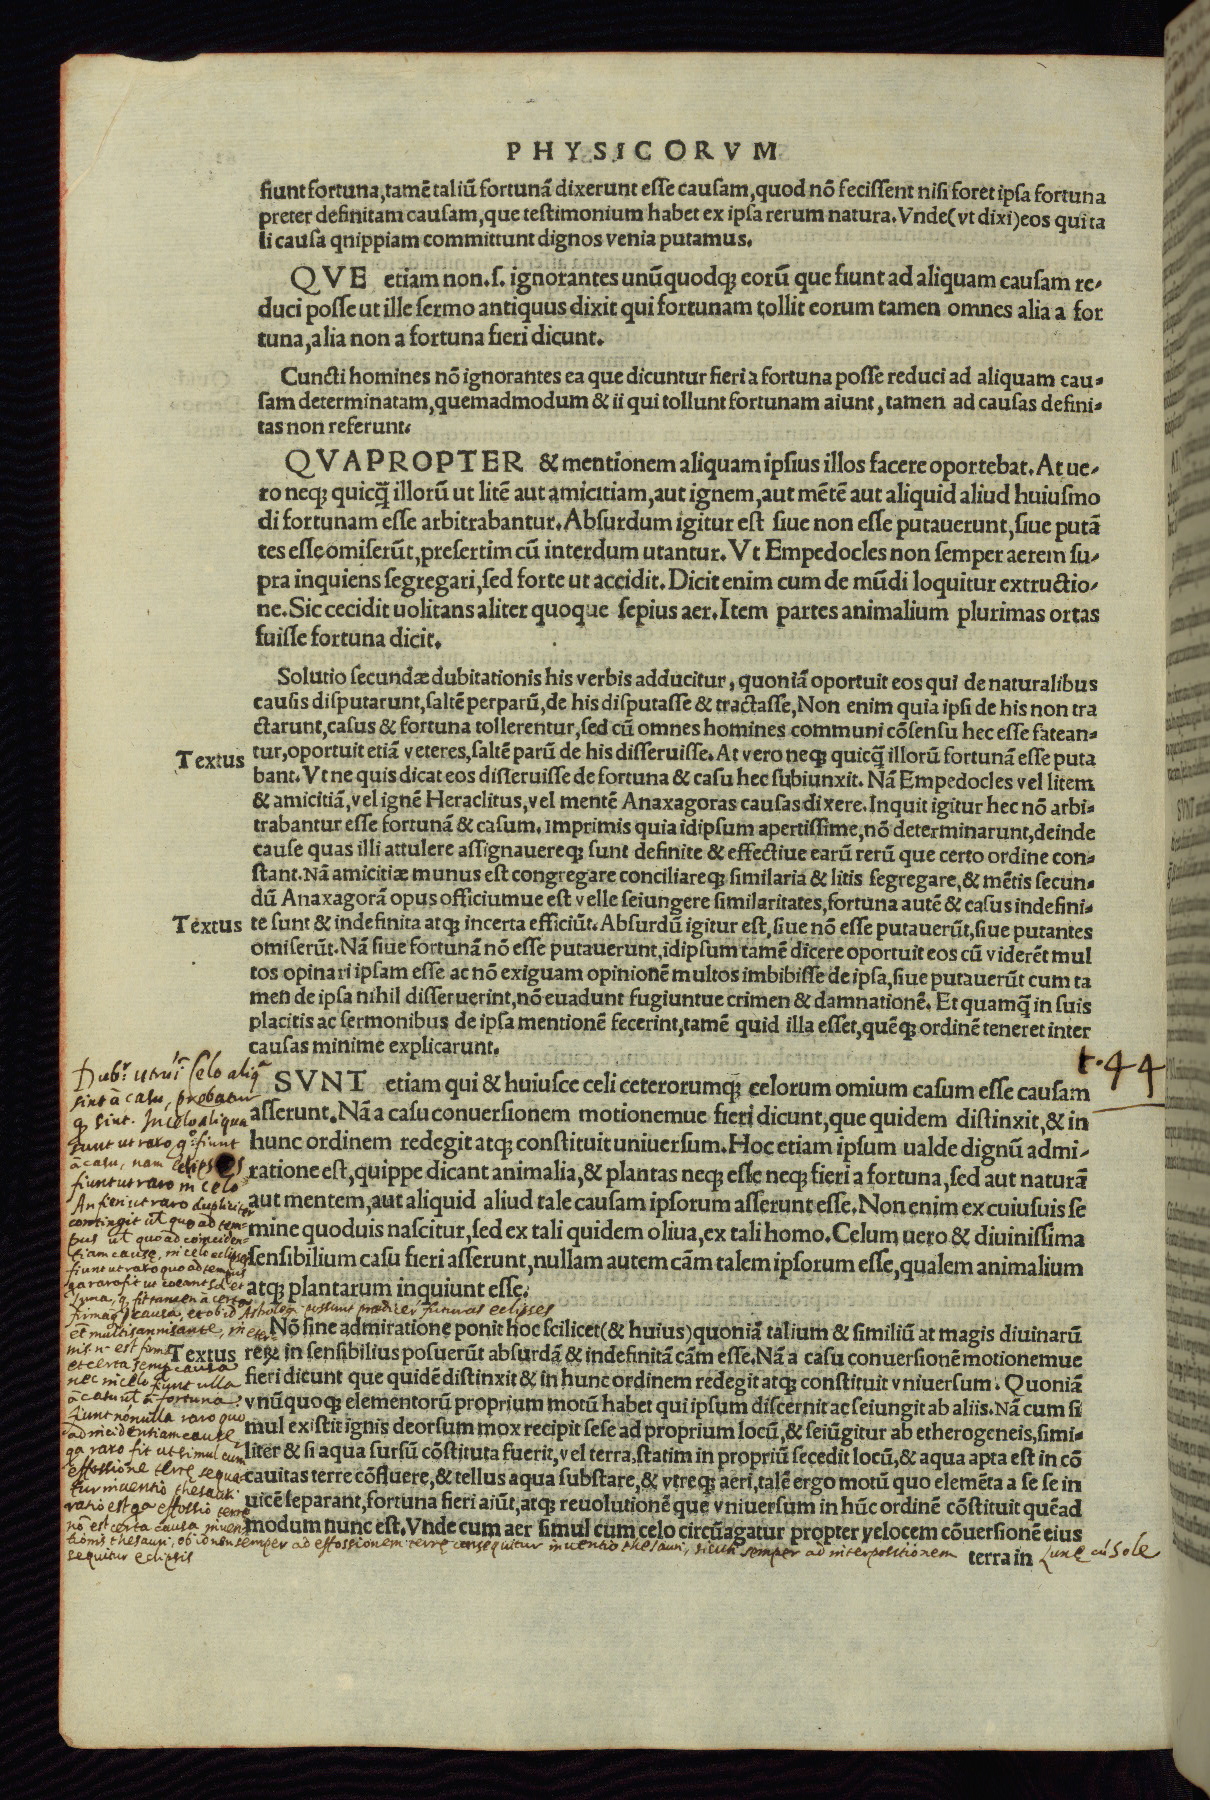 PHYSICORVM
fiunt fortuna,tamē taliū fortunā dixerunt esse causam,quod nō fecissent nisi foret ipsa fortuna
preter definitam causam,que testimonium habet ex ipsa rerum natura.Vnde(vt dixi)eos qui ta
li causa qnippiam committunt dignos venia putamus.
QVE etiam non.s. ignorantes unūquodqꝫ eorū que fiunt ad aliquam causam re-
duci posse ut ille sermo antiquus dixit qui fortunam tollit eorum tamen omnes alia a for
tuna,alia non a fortuna fieri dicunt.
Cuncti homines nō ignorantes ea que dicuntur fieri a fortuna posse reduci ad aliquam cau-
sam determinatam,quemadmodum & ii qui tollunt fortunam aiunt,tamen ad causas defini-
tas non referunt.
QVAPROPTER & mentionem aliquam ipsius illos facere oportebat.At ue-
ro neqꝫ quicq̄ illorū ut litē aut amicitiam,aut ignem,aut mētē aut aliquid aliud huiusmo
di fortunam esse arbitrabantur.Absurdum igitur est siue non esse putauerunt,siue putā
tes esse omiserūt,presertim cū interdum utantur.Vt Empedocles non semper aerem su-
pra inquiens segregari,sed forte ut accidit.Dicit enim cum de mūdi loquitur extructio-
ne.Sic cecidit uolitans aliter quoque sepius aer.Item partes animalium plurimas ortas
fuisse fortuna dicit.
Solutio secundæ dubitationis his verbis adducitur,quoniā oportuit eos qui de naturalibus
causis disputarunt,saltē perparū,de his disputasse & tractasse,Non enim quia ipsi de his non tra
ctarunt,casus & fortuna tollerentur,sed cū omnes homines communi cōsensu hec esse fatean-
Textus tur,oportuit etiā veteres,saltē parū de his disseruisse.At vero neqꝫ quicq̄ illorū fortunā esse puta
bant.Vt ne quis dicat eos disseruisse de fortuna & casu hec subiunxit. Nā Empedocles vel litem
& amicitiā,vel ignē Heraclitus,vel mentē Anaxagoras causas dixere.Inquit igitur hec nō arbi-
trabantur esse fortunā & casum.Imprimis quia idipsum apertissime,nō determinarunt,deinde
cause quas illi attulere assignauereqꝫ sunt definite & effectiue earū rerū que certo ordine con-
stant.Nā amicitiæ munus est congregare conciliareqꝫ similaria & litis segregare,& mētis secun-
dū Anaxagorā opus officiumue est velle seiungere similaritates,fortuna autē & casus indefini-
Textus te sunt & indefinita atqꝫ incerta efficiūt.Absurdū igitur est,siue nō esse putauerūt,siue putantes
omiserūt.Nā siue fortunā nō esse putauerunt,idipsum tamē dicere oportuit eos cū viderēt mul
tos opinari ipsam esse ac nō exiguam opinionē multos imbibisse de ipsa,siue putauerūt cum ta
men de ipsa nihil disseruerint,nō euadunt fugiuntue crimen & damnationē. Et quamq̄ in suis
placitis ac sermonibus de ipsa mentionē fecerint,tamē quid illa esset,quēqꝫ ordinē teneret inter
causas minime explicarunt.
t.44
SVNT etiam qui & huiusce celi ceterorumqꝫ celorum omium casum esse causam
asserunt.Nā a casu conuersionem motionemue fieri dicunt,que quidem distinxit,& in
hunc ordinem redegit atqꝫ constituit uniuersum.Hoc etiam ipsum ualde dignū admi-
ratione est,quippe dicant animalia,& plantas neqꝫ esse neqꝫ fieri a fortuna,sed aut naturā
aut mentem,aut aliquid aliud tale causam ipsorum asserunt esse.Non enim ex cuiusuis se
mine quoduis nascitur,sed ex tali quidem oliua,ex tali homo.Celum uero & diuinissima
sensibilium casu fieri asserunt,nullam autem cām talem ipsorum esse,qualem animalium
atqꝫ plantarum inquiunt esse.
Nō sine admiratione ponit hoc scilicet(& huius)quoniā talium & similiū at magis diuinarū
Textus reꝝ in sensibilius posuerūt absurdā & indefinitā cām esse.Nā a casu conuersionē motionemue
fieri dicunt que quidē distinxit & in hunc ordinem redegit atqꝫ constituit vniuersum.Quoniā
vnūquoqꝫ elementorū proprium motū habet qui ipsum discernit ac seiungit ab aliis.Nā cum si
mul existit ignis deorsum mox recipit sese ad proprium locū,& seiūgitur ab etherogeneis,simi-
liter & si aqua sursū cōstituta fuerit,vel terra,statim in propriū secedit locū,& aqua apta est in cō
cauitas terre cōfluere,& tellus aqua substare,& vtreqꝫ aeri,talē ergo motū quo elemēta a se se in
uicē separant,fortuna fieri aiūt,atqꝫ reuolutionē que vniuersum in hūc ordinē cōstituit quēad
modum nunc est.Vnde cum aer simul cum celo circūagatur propter velocem cōuersionē eius
terra in
Dubr. utrū Celo aliqa
sint à casu, probatur
q sint. In celo aliqua
sunt ut raro, q fiunt
à casu, nam eclipses
fiunt ut raro in celo
An fieri ut raro dupliciter
contingit ul quo ad tem-
pus ul quo ad coinciden-
tiam cause, in celo eclipses
fiunt ut raro quo ad tempus
ga raro fit ut coeant sol et
Luna, q fit tamen à certa
firmaq causa, et ob id Astrologi possunt predicer futuras eclipses
et multis annis ante,
nec in celo fiunt ulla
à casu ul à fortuna
fiunt nonulla raro quo
ad incidentiam cause
ga raro fit ut simul cum
effossione terre sequa-
tur inventio thesauri
ratio est ga effossio terre
nō est certa causa inven-
tionis thesauri, ob id non semper ad effossionem terre consequitur inventio thesauri, sicuti semper ad interpositionem Lune cū Sole
sequitur eclipsis